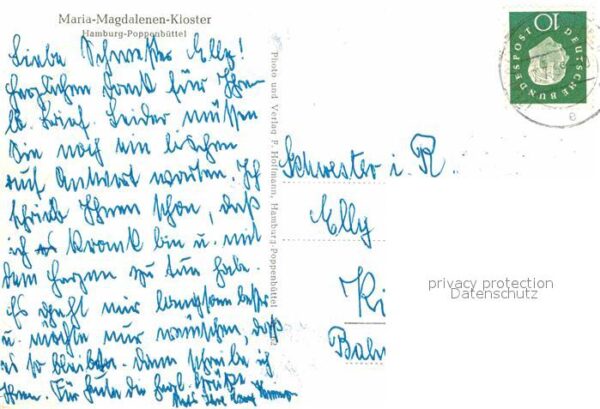 Maria-Magdalenen-Kloster
Hamburg-Poppenbüttel
Liebe Schwester Elly!
Herzlichen Dank für Ihren
lb. Brief. Leider müssen
Sie noch ein bischen
auf Antwort warten. Ich
schrieb Ihnen schon, daß
ich krank bin u. mit
dem Herzen zu tun habe.
Es geht mir langsam besser
u. möchte nur wünschen, daß
es so bleibt. Dann schreibe ich
Ihnen. Für heute die herzl. Grüße
Ihre
Photo und Verlag F. Hoffmann, Hamburg-Poppenbüttel
10
DEUTSCHE BUNDESPOST
e
Schwester i. R.
Elly
Ki
Bahn
privacy protection
Datenschutz